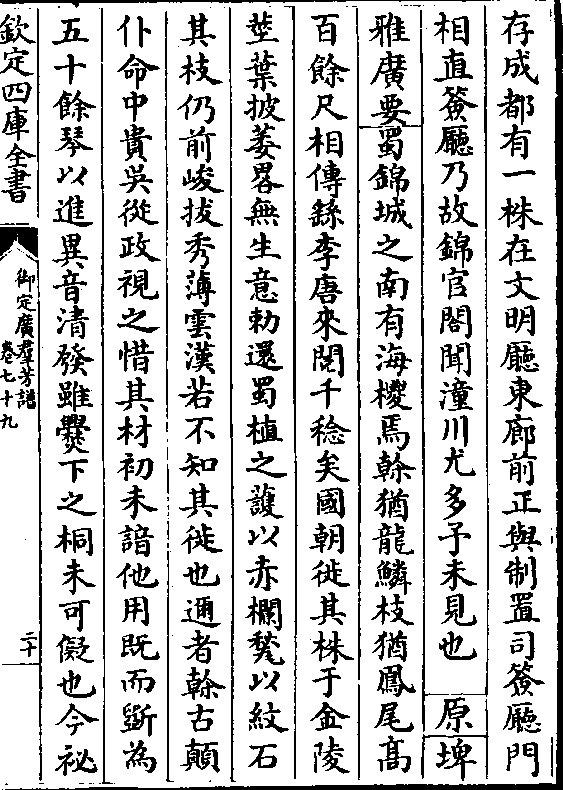 存成都有一株在文明廳東廊前正與制置司簽廳門
相直簽廳乃故錦官閣聞潼川尤多予未見也 原 埤
雅廣要 蜀錦城之南有海椶焉榦猶龍鱗枝猶鳳尾髙
百餘尺相傳繇李唐來閱千稔矣國朝徙其株于金陵
莖葉披萎畧無生意勅還蜀植之護以赤欄甃以紋石
其枝仍前峻拔秀薄雲漢若不知其徙也邇者榦古顛
仆命中貴吳從政視之惜其材初未諳他用既而斵為
五十餘琴以進異音清發雖㸑下之桐未可儗也今祕
欽定四庫全書
御定廣羣芳譜
卷七十九
二十